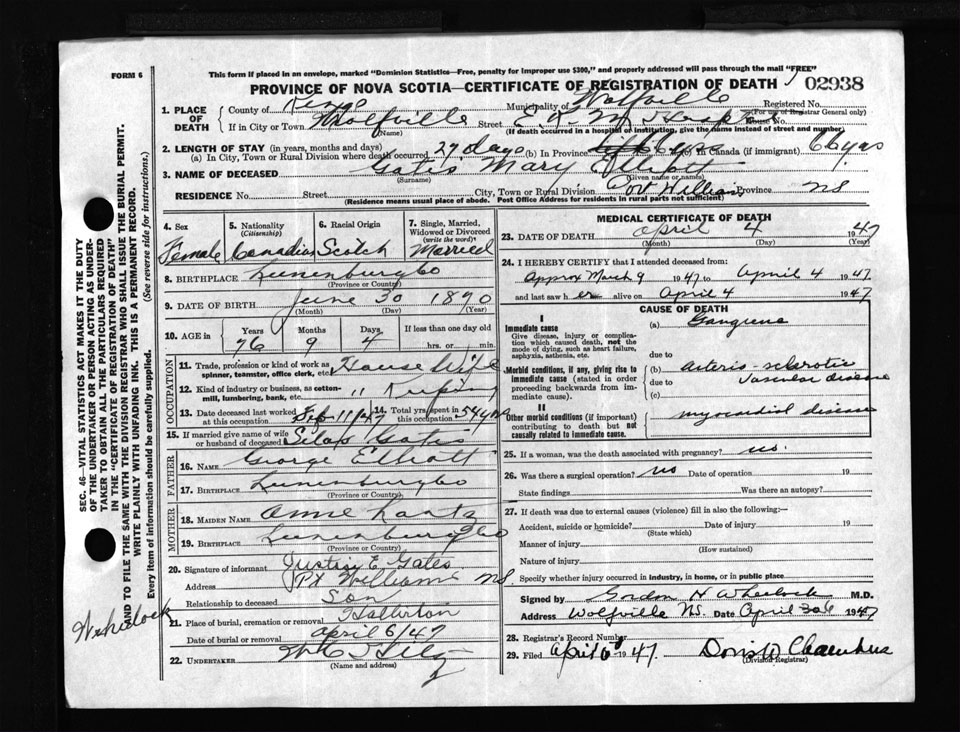 FORM 6
This form if placed in an envelope, marked "Dominion Statistics—Free, penalty for improper use $300," and properly addressed will pass through the mail "FREE"
PROVINCE OF NOVA SCOTIA—CERTIFICATE OF REGISTRATION OF DEATH
02938
1. PLACE OF DEATH
County of Kings Municipality of Wolfville Registered No.
(For use of Registrar General only)
If in City or Town Wolfville Street E. K. M. Hospt House No.
(Name) (If death occurred in a hospital or institution, give the name instead of street and number)
2. LENGTH OF STAY (in years, months and days)
(a) In City, Town or Rural Division where death occurred 27 days (b) In Province 66 yrs (c) In Canada (if immigrant) 66 yrs
3. NAME OF DECEASED Gates Mary Elliott
(Surname) (Given name or names)
RESIDENCE No. Street City, Town or Rural Division Port Williams Province NS
(Residence means usual place of abode. Post Office Address for residents in rural parts not sufficient)
4. Sex Female
5. Nationality (Citizenship) Canadian
6. Racial Origin Scotch
7. Single, Married, Widowed or Divorced (write the word) Married
8. BIRTHPLACE Lunenburg Co
(Province or Country)
9. DATE OF BIRTH June 30 1890
(Month) (Day) (Year)
10. AGE in Years Months Days If less than one day old
76 9 4 hrs. or min.
OCCUPATION
11. Trade, profession or kind of work as spinner, teamster, office clerk, etc. House Wife
12. Kind of industry or business, as cotton-mill, lumbering, bank, etc. " Keeping
13. Date deceased last worked at this occupation Feb 11/47
14. Total yrs. spent in this occupation 54 yrs
15. If married give name of wife or husband of deceased Silas Gates
FATHER
16. NAME George Elliott
17. BIRTHPLACE Lunenburg Co
(Province or Country)
MOTHER
18. MAIDEN NAME Annie Lantz
19. BIRTHPLACE Lunenburg Co
(Province or Country)
20. Signature of informant Justin E. Gates
Address Pt Williams NS.
Relationship to deceased Son
21. Place of burial, cremation or removal
Date of burial or removal April 6/47
22. UNDERTAKER
(Name and address)
MEDICAL CERTIFICATE OF DEATH
23. DATE OF DEATH April 4 1947
(Month) (Day) (Year)
24. I HEREBY CERTIFY that I attended deceased from:
Approx March 9 1947 to April 4 1947
and last saw her alive on April 4 1947
CAUSE OF DEATH
I
Immediate cause
Give disease, injury or complication which caused death, not the mode of dying, such as heart failure, asphyxia, asthenia, etc.
(a) Gangrene
due to
Morbid conditions, if any, giving rise to immediate cause (stated in order proceeding backwards from immediate).
(b) arterio-sclerotic
due to vascular disease
(c)
II
Other morbid conditions (if important) contributing to death but not causally related to immediate cause.
myocardial disease
25. If a woman, was the death associated with pregnancy? no.
26. Was there a surgical operation? no Date of operation 19
State findings Was there an autopsy?
27. If death was due to external causes (violence) fill in also the following:—
Accident, suicide or homicide? Date of injury 19
(State which)
Manner of injury
(How sustained)
Nature of injury
Specify whether injury occurred in industry, in home, or in public place
Signed by Gordon H Wheelock M.D.
Address Wolfville NS. Date April 1947
28. Registrar's Record Number
29. Filed April 1947 Doris W Chambers
(Division Registrar)
SEC. 46—VITAL STATISTICS ACT MAKES IT THE DUTY OF THE UNDERTAKER OR PERSON ACTING AS UNDERTAKER TO OBTAIN ALL THE PARTICULARS REQUIRED IN THE "CERTIFICATE OF REGISTRATION OF DEATH" AND TO FILE THE SAME WITH THE DIVISION REGISTRAR WHO SHALL ISSUE THE BURIAL PERMIT.
WRITE PLAINLY WITH UNFADING INK. THIS IS A PERMANENT RECORD.
Every item of information should be carefully supplied. (See reverse side for instructions.)
Wheelock